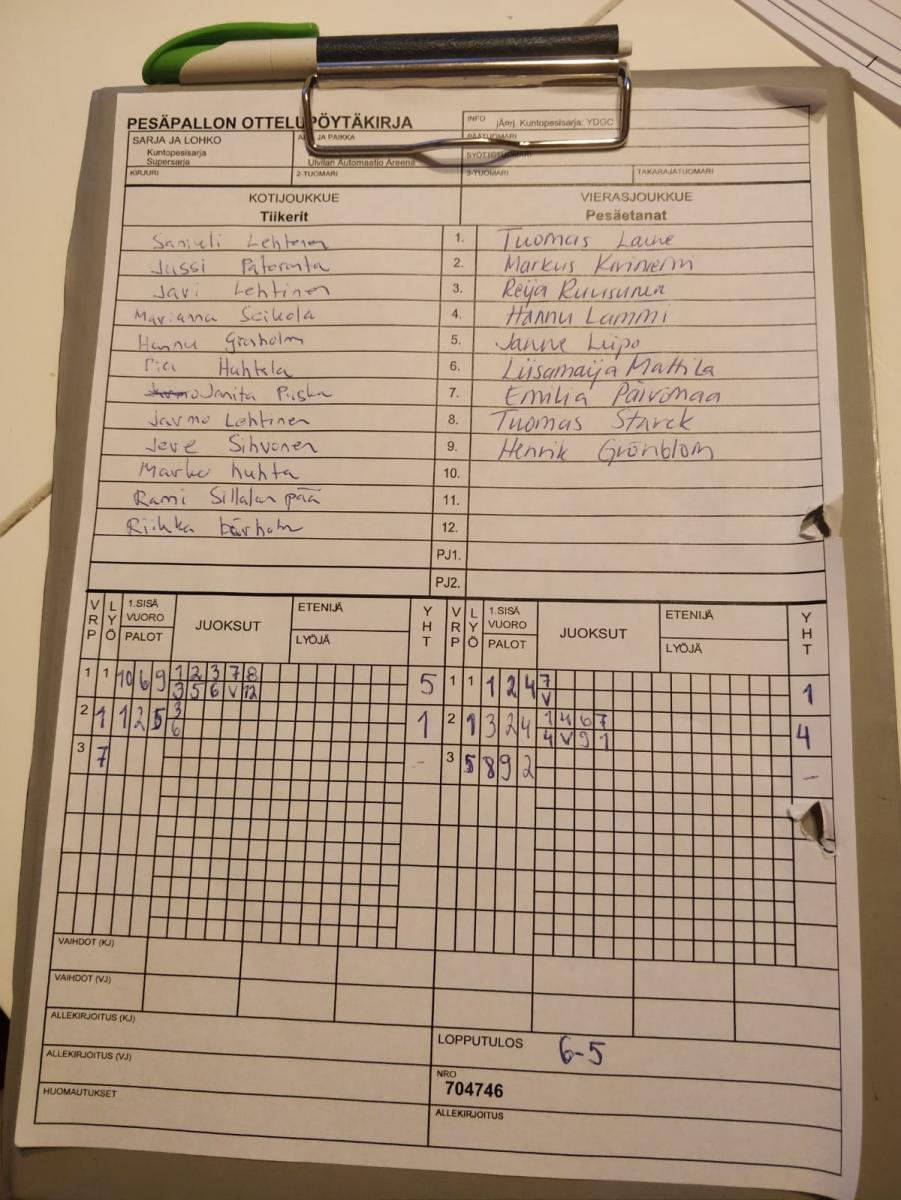 PESÄPALLON OTTELUPÖYTÄKIRJA
INFO jÄrrj. Kuntopesisarja: YDGC
SARJA JA LOHKO
JA PAIKKA
PÄÄTUOMARI
Kuntopesisarja
Supersarja
Ulvilan Automaatio Areena
SYÖTTÖTUOMARI
KIRJURI 2-TUOMARI 3-TUOMARI TAKARAJATUOMARI
KOTIJOUKKUE VIERASJOUKKUE
Tiikerit Pesäetanat
Samuli Lehtinen 1. Tuomas Laine
Jussi Pateranta 2. Markus Kiviniemi
Jari Lehtinen 3. Reija Ruusunen
Marianna Seikola 4. Hannu Lammi
Hannu 5. Janne Leipo
Pia Huhtala 6. Liisamaija Mattila
Janita 7. Emilia Päivömaa
Jarmo Lehtinen 8. Tuomas Starck
Jere Sihvonen 9. Henrik Grönblom
Marko huhta 10.
Rami Sillalanpää 11.
Riikka 12.
PJ1.
PJ2.
VRP LYÖ 1.SISÄ VUORO PALOT JUOKSUT ETENIJÄ LYÖJÄ YHT VRP LYÖ 1.SISÄ VUORO PALOT JUOKSUT ETENIJÄ LYÖJÄ YHT
1 1 10 6 9 1 2 3 7 8 5 1 1 1 2 4 7 1
3 5 6 V 12 V
2 1 1 2 5 3 1 2 1 3 2 4 1 4 6 7 4
6 4 V 9 1
3 7 - 3 5 8 9 2 -
VAIHDOT (KJ)
VAIHDOT (VJ)
ALLEKIRJOITUS (KJ)
LOPPUTULOS 6-5
ALLEKIRJOITUS (VJ)
NRO
704746
HUOMAUTUKSET
ALLEKIRJOITUS